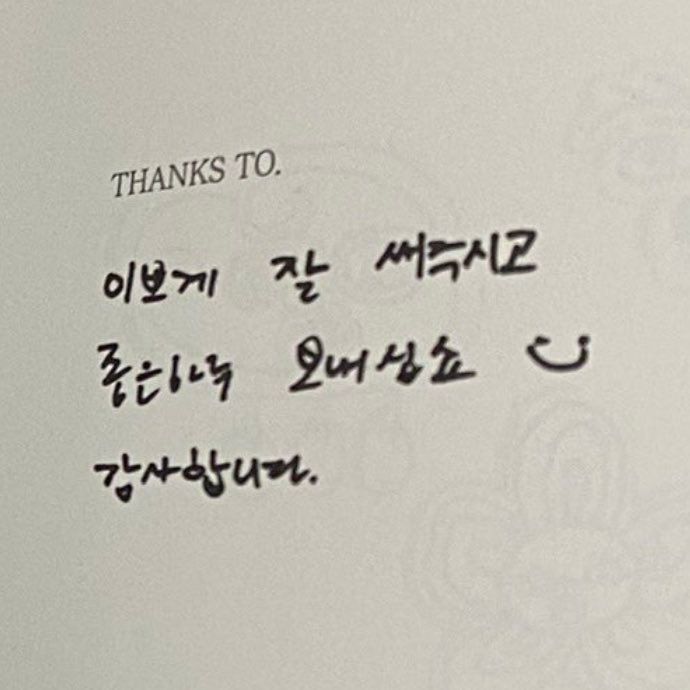 THANKS TO.
이보게 잘 써주시고
좋은하루 보내십쇼
감사합니다.